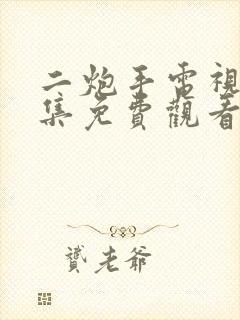 二炮手電視
集免費觀看
贇老爺